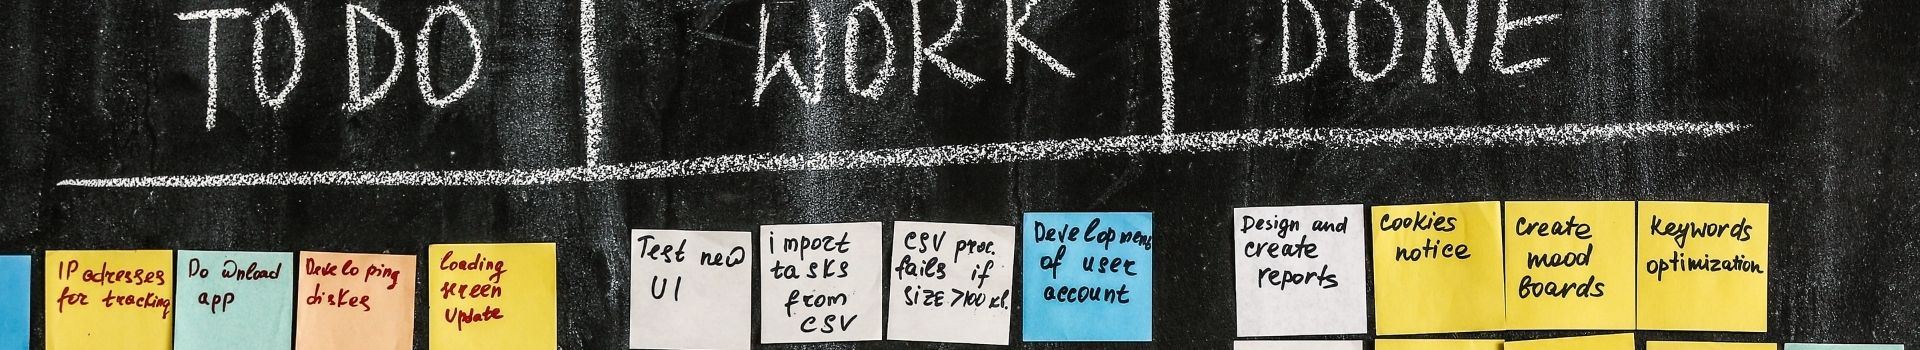 TO DO
WORK
DONE
IP adresses
for tracking
Download
app
Developing
diskes
Loading
screen
Update
Test new
UI
import
tasks
from
CSV
CSV proc.
fails if
SIZE >100
Development
of user
account
Design and
create
reports
Cookies
notice
Create
mood
boards
Keywords
optimization